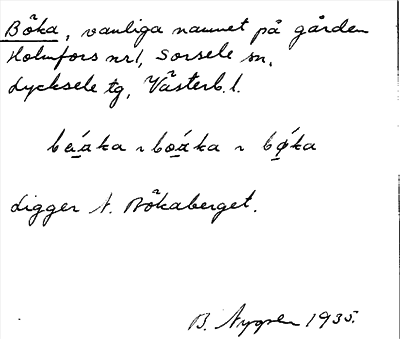 Böka, vanliga namnet på gården
Holmfors nr 1, Sorsele sn,
Lycksele tg, Västerb. l.
Ligger N. Bökaberget.
B. Nygren 1935.